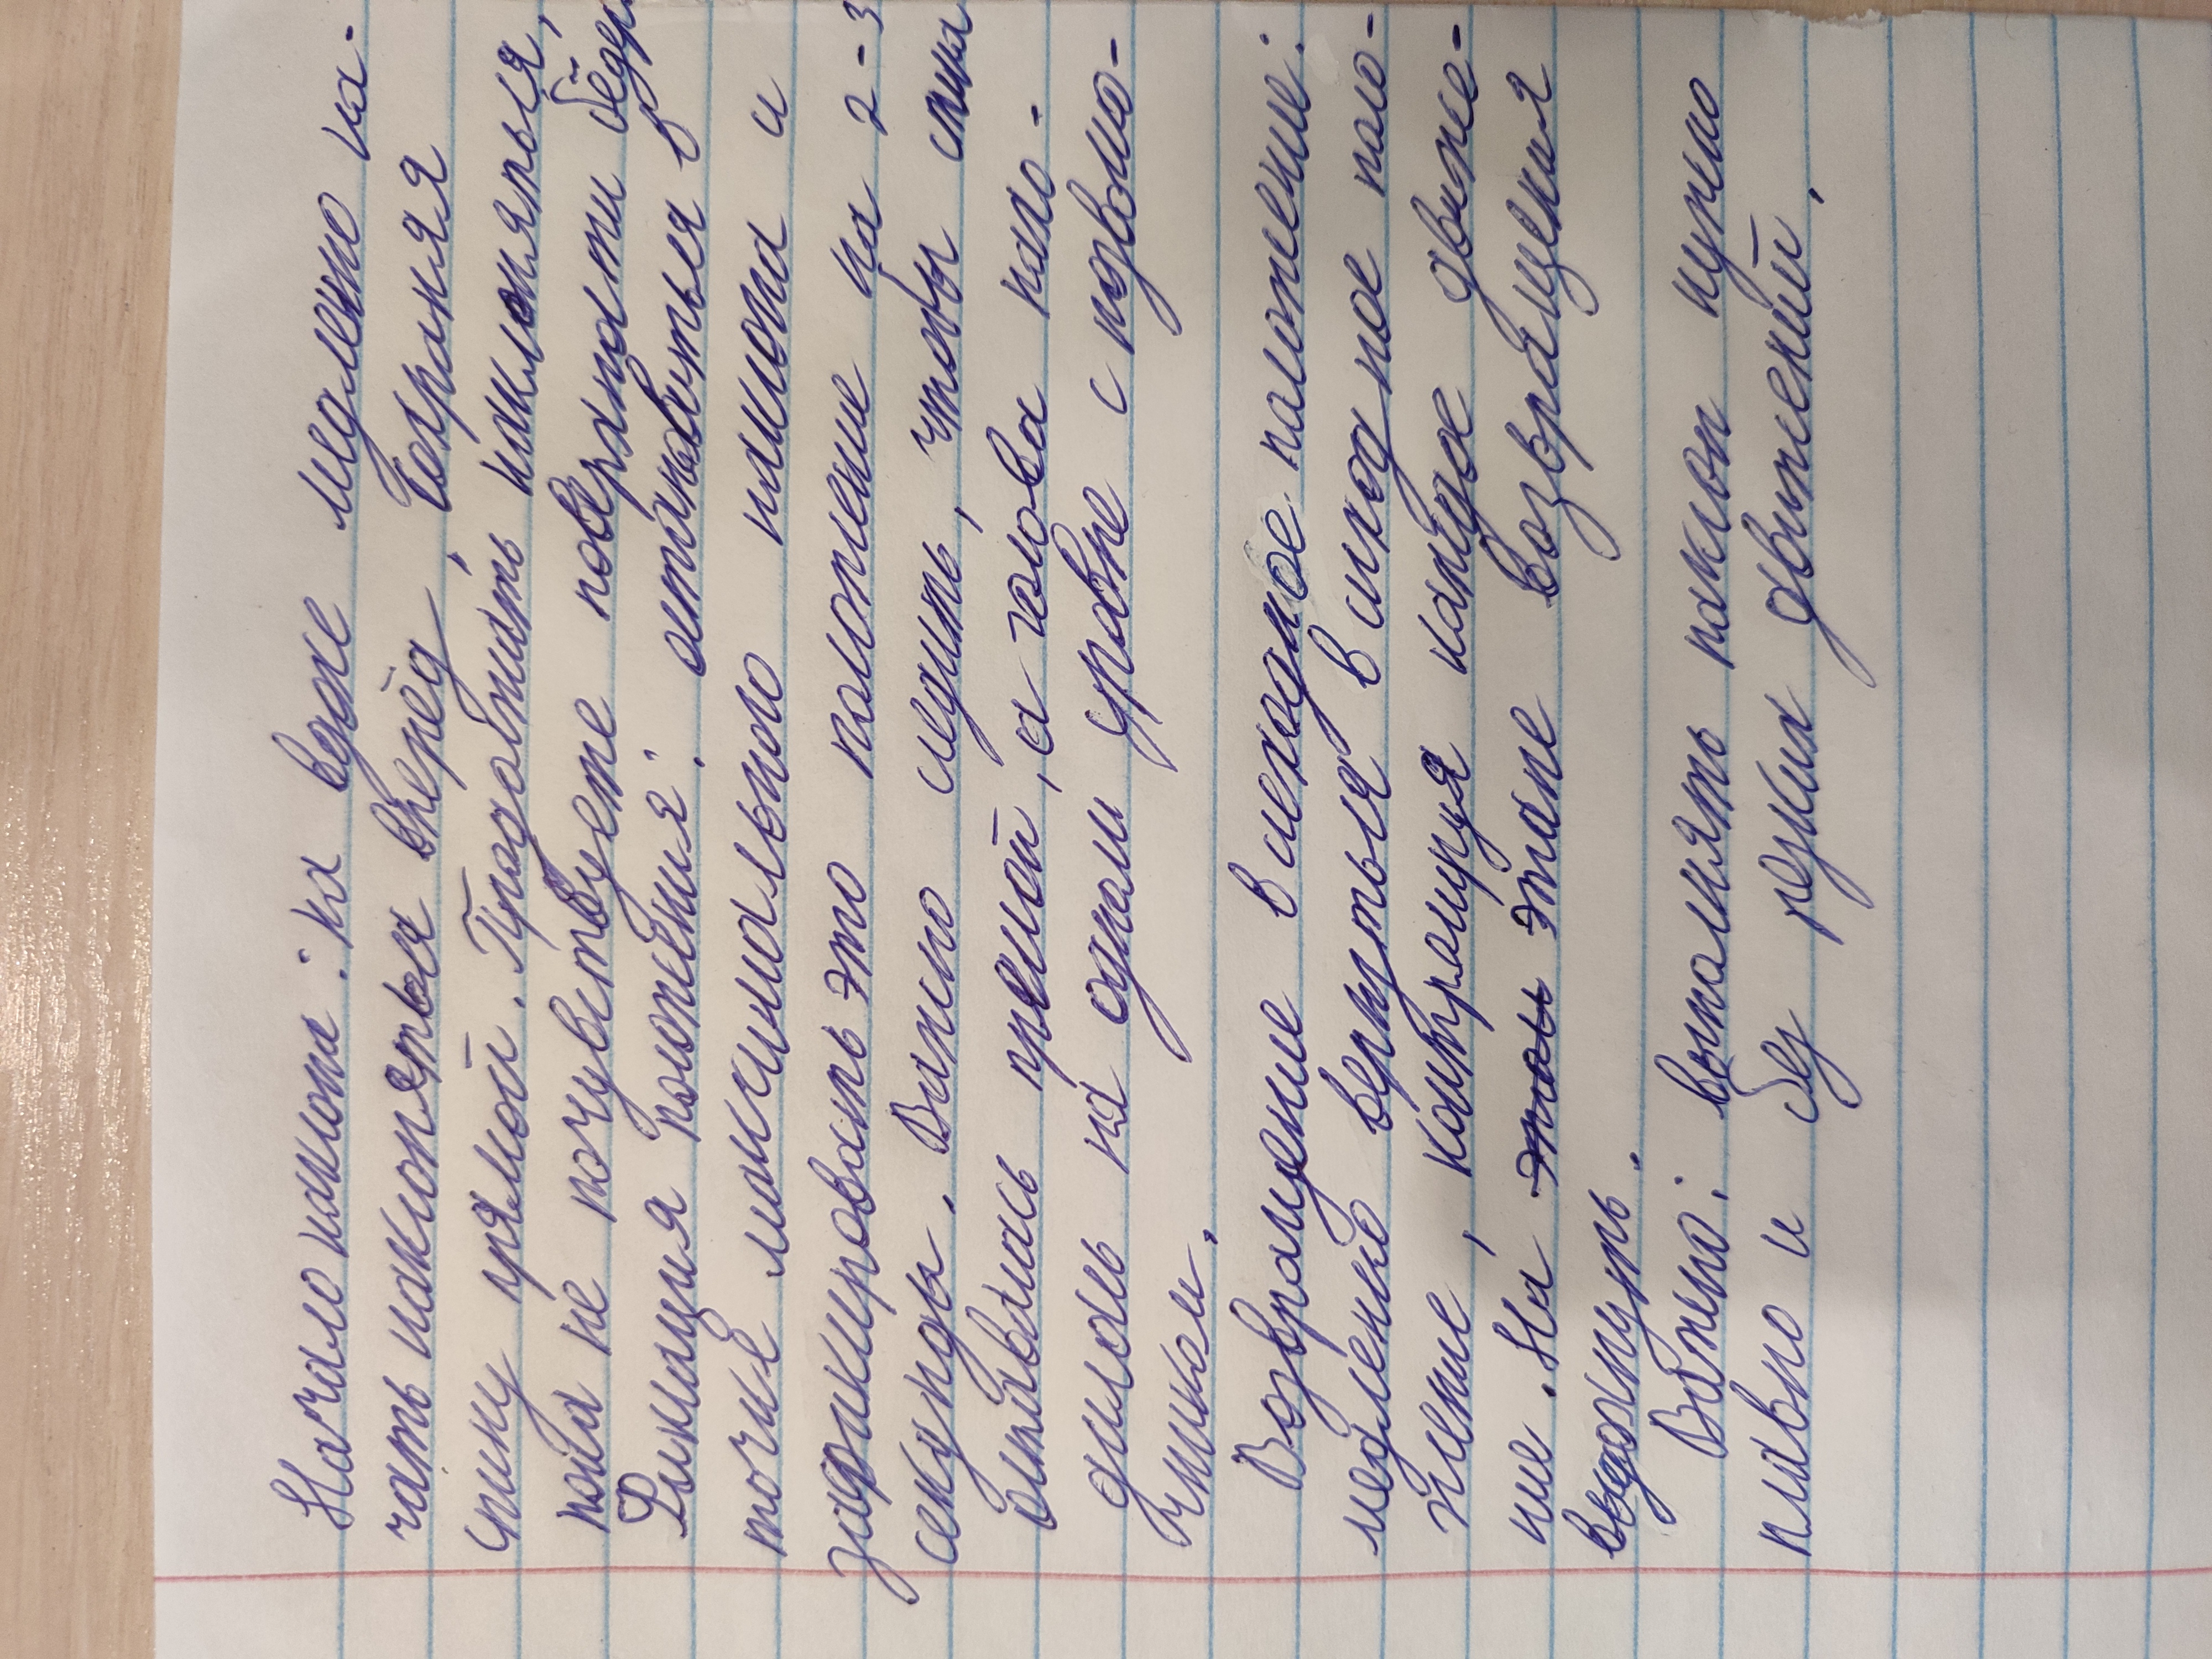 Начало наклона: на вдохе медлено на-
чать наклоняться вперёд, сохраняя
спину прямой. Продолжать наклоняться,
пока не почувствуете поверхности бедра
Фиксация положения: остановиться в
точке максимального наклона и
зафиксировать это положение на 2-3
секунды. Важно следить, чтобы спина
оставалась прямой, а голова нахо-
дилась на одном уровне с позвоно-
чником.
Возвращение в исходное положение:
медленно вернуться в исходное поло-
жение, контролируя каждое движе-
ние. На этом этапе возвращения
выдохнуть.
Важно: выполнять наклон нужно
плавно и без резких движений.